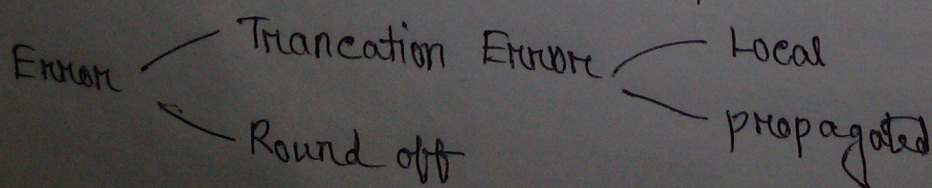 Error
Trancation Error
Local
propagated
Round off